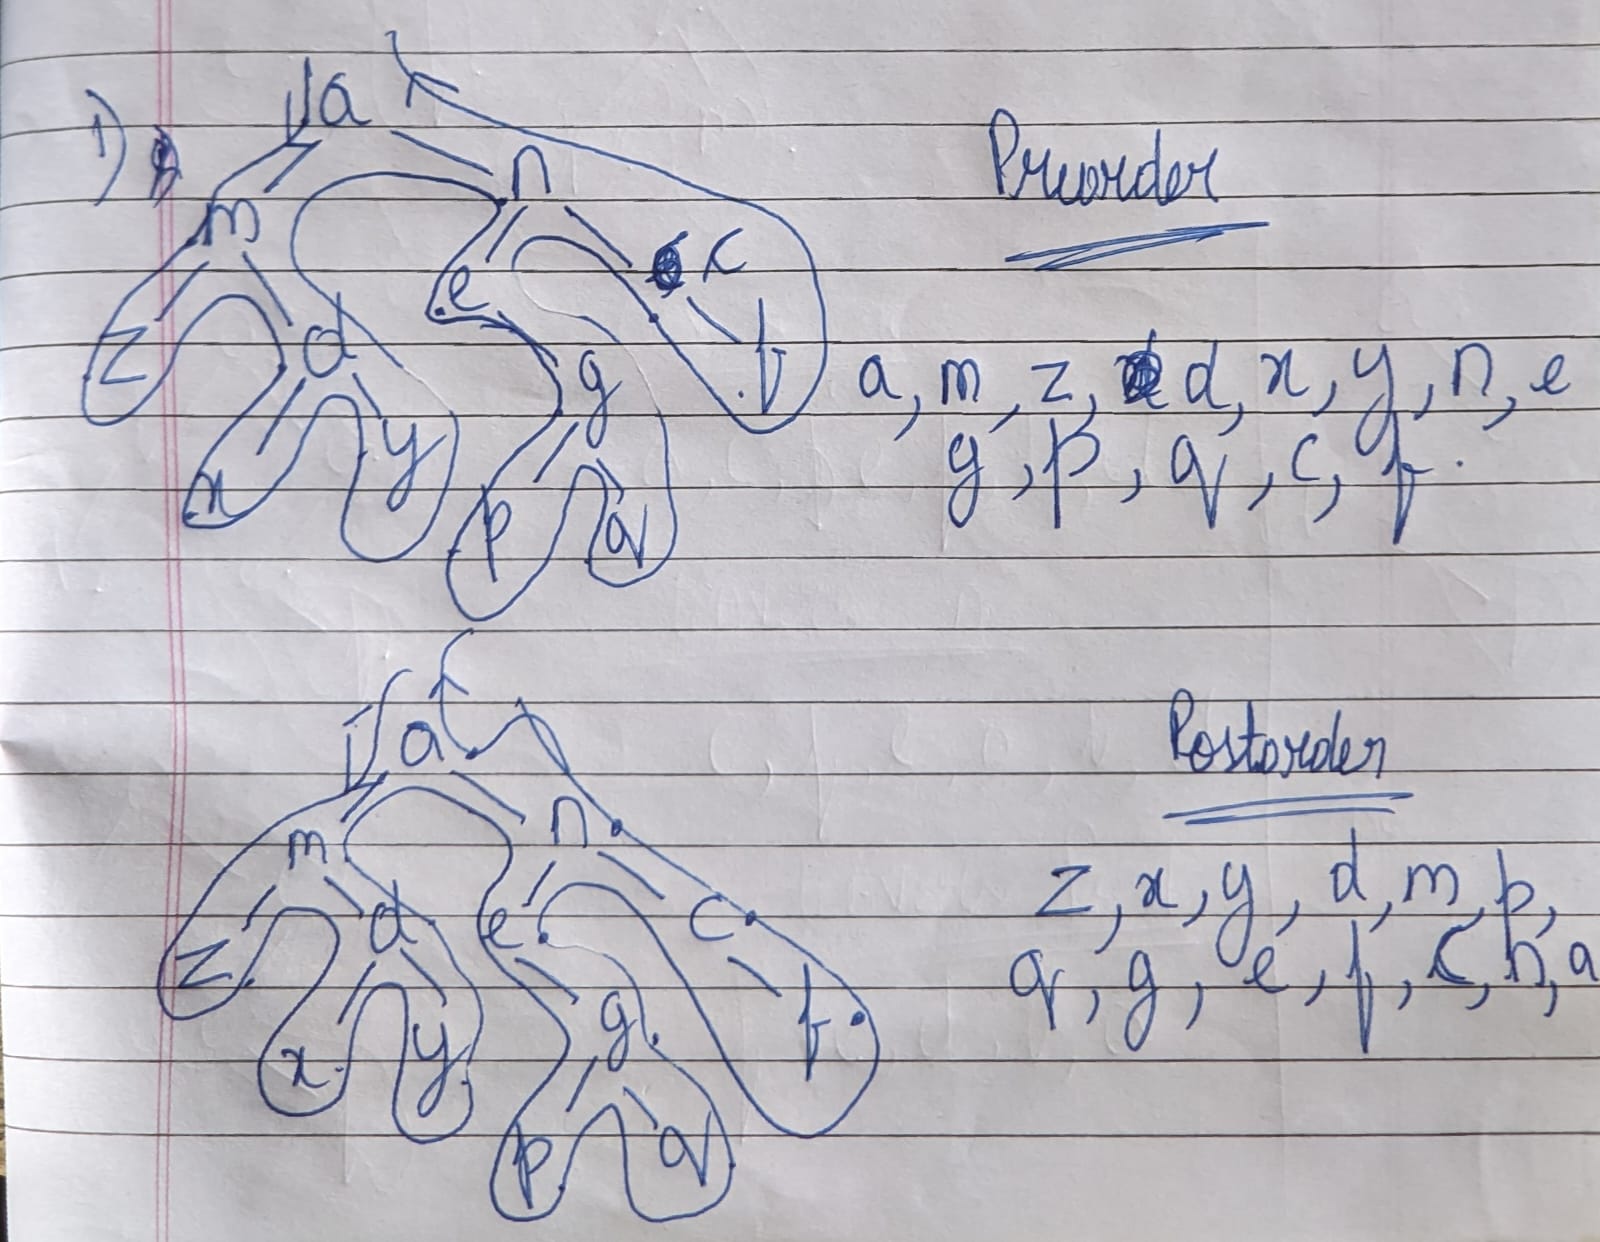 1)
a
m n
z d e c
g f
x y
p q
Preorder
a, m, z, d, x, y, n, e
g, p, q, c, f.
a
m n
z d e c
x y g f
p q
Postorder
z, x, y, d, m, p,
q, g, e, f, c, n, a